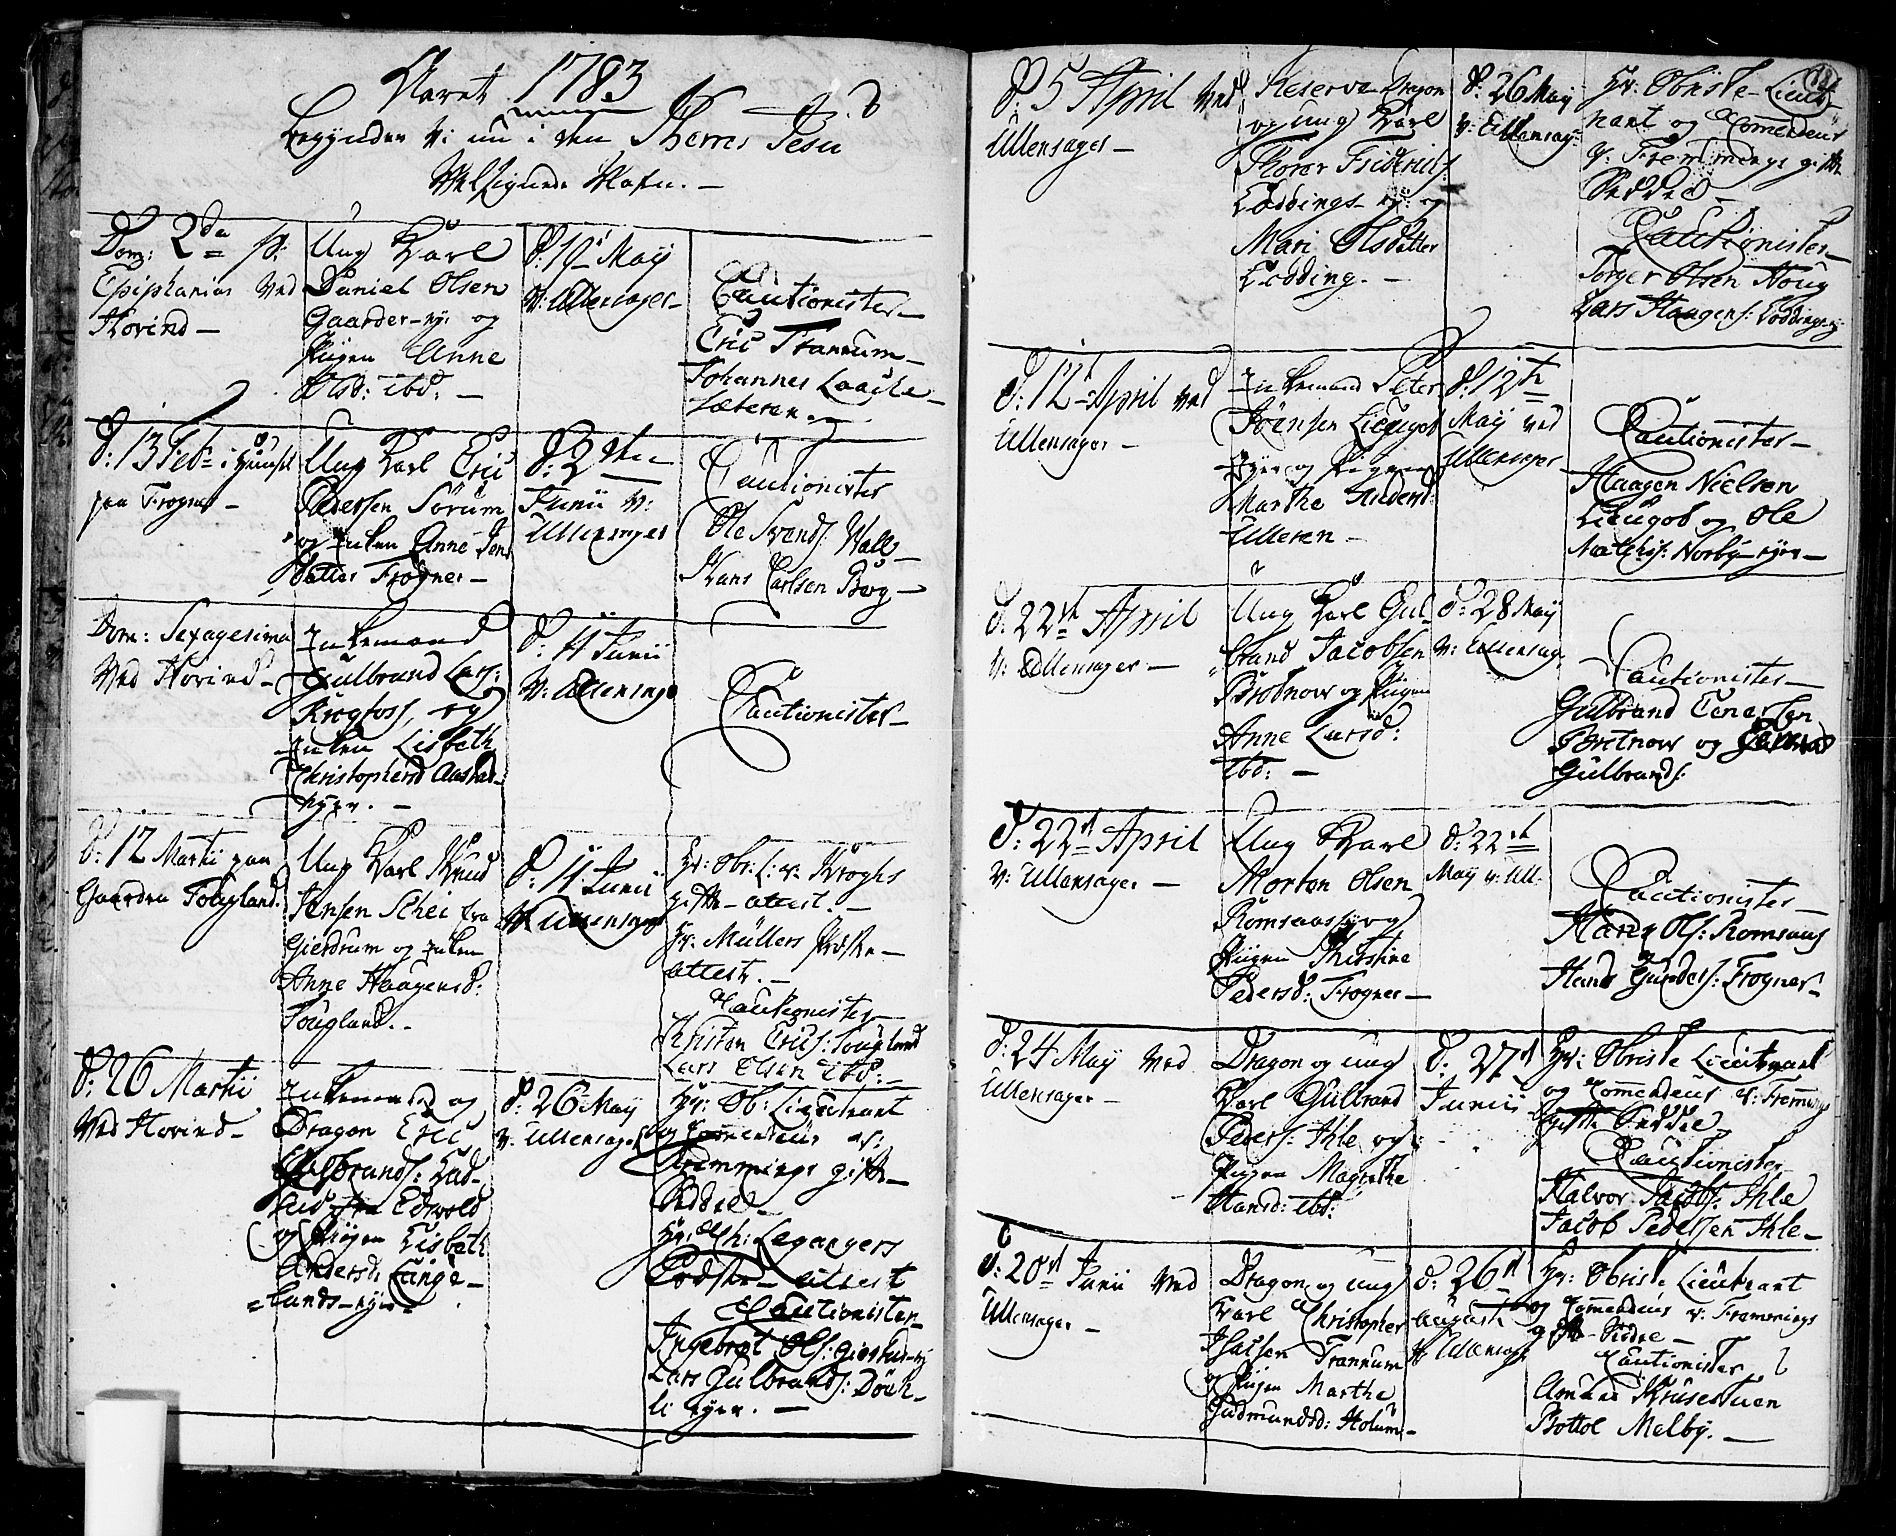 Aaret 1783
begynder Vi nu i den Herres Jesu
Velsignede Nafn. —
Dom: 2da p:
Epiphanias Ved
Hovind —
Ung Karl
Daniel Olsen
Gaarder-eje og
Pigen Anne
Olsd: ibd: —
d: 19 May
V: Ullensager —
Cautionister —
Eric Trannum —
Johannes Laache
Sæteren
d: 13 Feb: i Huuset
paa Frogner —
Ung Karl Eric
Pedersen Sørum
og Enken Anne Jens
datter Frogner —
d: 2den
Junii v:
Ullensager
Cautionister
Ole Svends: Wall
Hans Carlsen Berg —
Dom: Sexagesima
Ved Hovind —
Enkemand
Gulbrand Lars:
Krogfoss, og
Enken Lisbeth
Christophersd Aastad-
eyer. —
d: 11 Junii
V: Ullensager
Cautionister —
d: 12 Martii paa
Gaarden Fougland.
Ung Karl Knud
Jensen Schei fra
Gierdrum og Enken
Anne Haagensd:
Fougland. —
d: 11 Junii
V. Ullensager
Hr: Obr: L: v: Kroghs
gifte-attest. —
Hr: Müllers Præste —
attest. —
Cautionister —
Christen Erics: Fougland
Lars Olsen ibd: —
d: 26 Martii
Ved Hovind —
Enkemand og
Dragon Eric
Gulbrands: Had-
fra Edsvold
og Pigen Lisbeth
Andersd: Lange-
lunds-eyer
d: 26 May
V: Ullensager
Hr: Ob: Lieutnant
og Commendeur v:
Fremmings gifte —
Seddel —
Hr: Leganger
Præste — attest
Cautionister —
Ingebret Ols: Gierstad-ej
Lars Gulbrands: Døch-
li eyer. —
d: 5 April Ved
Ullensager —
Reserve-Dragon
og ung Karl
Thorer Friderichs:
Lodding- ej: og
Mari Olsdatter
Lodding. —
d: 26 May
v: Ullensag:
Hr: Obriste-Lieut
nant og Commendeur
v: Fremmings gifte
Seddel —
Cautionister —
Torger Olsen Houg
Lars Haagens: Lodding-ej
d: 12 April Ved
Ullensager —
Enkemand Peter
Joensen Lieugob
Eyer og Pigen
Marthe Andersd:
Ulleren —
d: 12te
May ved
Ullensager
Cautionister —
Haagen Nielsen
Lieugob og Ole
Mathis: Norby-eyer —
d: 22de April
V: Ullensager —
Ung Karl Gul-
brand Jacobsen
Brotnow og Pigen
Anne Larsd:
ibd: —
d: 28 May
V: Ullensag:
Cautionister —
Gulbrand Tenersen
Brotnow og
Gulbrands:
d: 22de April
V: Ullensager —
Ung Karl
Morten Olsen
Romsaas og
Pigen Kirstine
Pedersd: Frogner —
d: 22de
May v: Ull:
Cautionister —
Hans Ols: Romsaas
Hans Gunders: Frogner —
d: 24 May Ved
Ullensager —
Dragon og ung
Karl Gulbrand
Peders: Ihle og
Pigen Magrethe
Hansd: ibd:
d: 27de
Junii
Hr: Obriste Lieutnant
og Commendeur v: Fremmings
gifte Seddel
Cautionister
Halvor Jacobs: Ihle
Jacob Pedersen Ihle —
d: 20de Junii Ved
Ullensager —
Dragon og ung
Karl Christopher
Isacsen Trannum
og Pigen Marthe
Gudmundsd: Holum —
d: 26de
Augusti
V: Ullensag:
Hr: Obriste Lieutnant
og Commendeur v: Fremmings
gifte-Seddel —
Cautionister
Amund Krusestuen
Bottol Melby. —